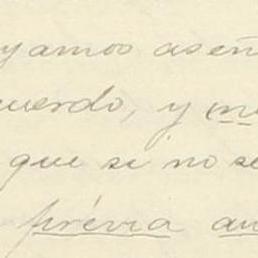 yamos aseñ
uerdo, y m
que si no se
prévia au